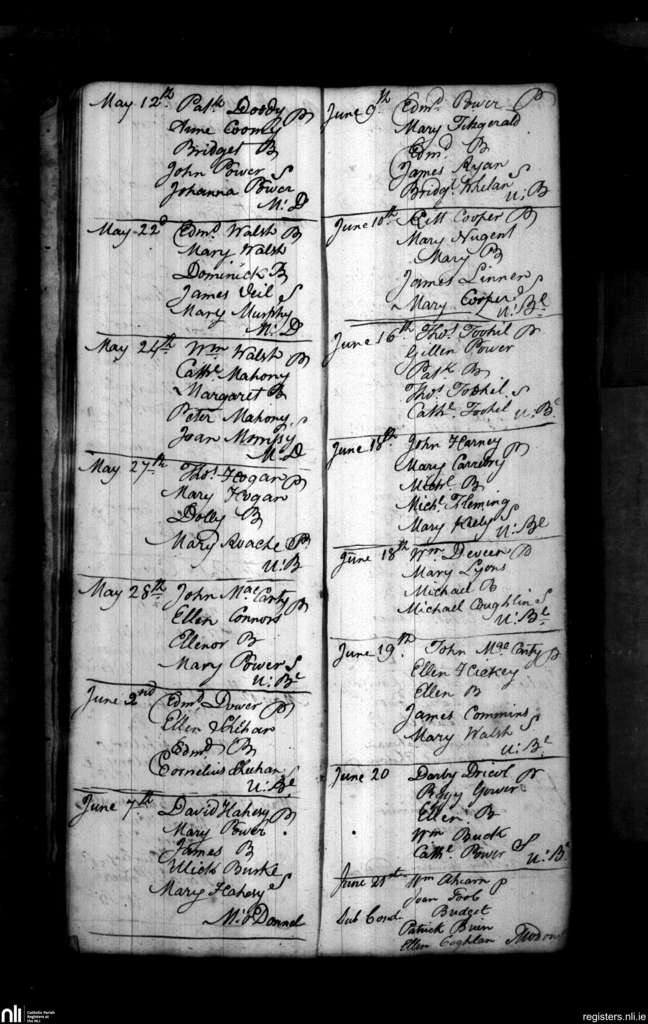 May 12th Patk Doody P
Anne Cooney
Bridget B
John Power S
Johanna Power
M: D
May 22d Edmd Walsh P
Mary Walsh
Dominick B
James Veil S
Mary Murphy
M: D
May 24th Wm Walsh P
Cathe Mahony
Margaret B
Peter Mahony S
Joan Morrissy
M: D
May 27th Thos Hogan P
Mary Hogan
Dolly B
Mary Roache
U: B
May 28th John MacCarty P
Ellen Connors
Ellenor B
Mary Power S
U: Be
June 2nd Edmd Dower P
Ellen
Edmd B
Cornelius S
U: Be
June 7th David Flahery P
Mary Power
James B
Ulick Burke
Mary Flahery S
M: o Donnel
June 9th Edmd Power P
Mary Fitzgerald
Edmd B
James Ryan
Bridgt Whelan S
U: B
June 10th Kitt Cooper P
Mary Nugent
Mary B
James Linnen S
Mary Cooper
U: Be
June 16th Thos Toohil P
Gillen Power
Patk B
Thos Toohil S
Cathe Toohil U: Be
June 18th John Harney P
Mary
Michl B
Michl Fleming
Mary Kiely S
U: Be
June 18th Wm Deveen P
Mary Lyons
Michael B
Michael Coughlin S
U: Be
June 19th John Mac Carty P
Ellen Hickey
Ellen B
James Commins
Mary Walsh S
U: Be
June 20 Darby P
Peggy Gower
Ellen B
Wm Buck
Cathe Power S
U: Be
June 21st Wm Ahearn P
Joan
Sub Cond. Bridget
Patrick
Ellen Coghlan
nli
Catholic Parish
Registers at
the NLI
registers.nli.ie